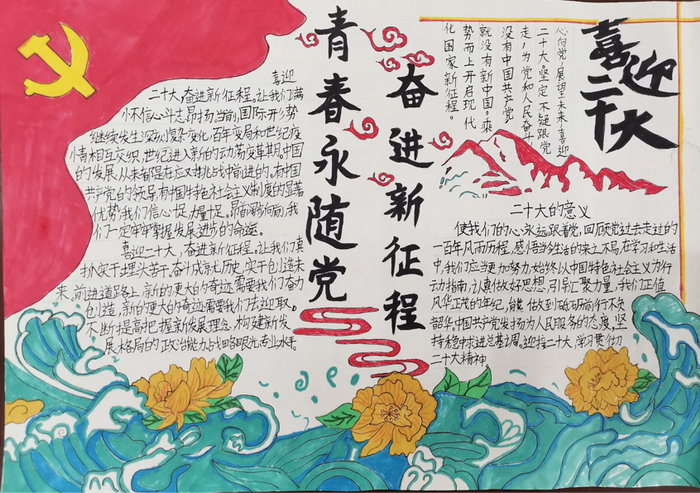 青春永随党
奋进新征程
喜迎
二十大
喜迎
二十大,奋进新征程,让我们满
怀信心斗志昂扬,当前,国际形势
继续发生深刻复杂变化,百年变局和世纪疫
情相互交织,世纪进入新的动荡变革期。中国
的发展,从来都是在应又挑战中前进的,有中国
共产党的领导,有中国特色社会主义制度的显著
优势,我们信心足,力量足。昂首阔步向前,我
们一定牢牢掌握发展进步的命途。
喜迎二十大,奋进新征程,让我们真
抓实干埋头苦干,奋斗成就历史,实干创造未
来,前进道路上,新的更大的奇迹需要我们奋力
创造,新的更大的奇迹需要我们去迎取。
不断提高把握新发展理念、构建新发
展格局的政治能力、战略眼光、专业水平。
心向党,展望未来,喜迎
二十大,坚定不疑跟党
走,为党和人民奋斗
没有中国共产党
就没有新中国。乘
势而上开启现代
化国家新征程。
二十大的意义
使我们的心永远跟着党,回顾党过去走过的
一百年风雨历程,感悟当今生活的来之不易,在学习和生活
中,我们应当更加努力,始终以中国特色社会主义为行
动指南,认真做好思想引导,汇聚力量,我们正值
风华正茂的年纪,能做到砥砺前行不负
韶华,中国共产党坚持为人民服务的态度,坚
持稳中求进总基调。迎接二十大,学习贯彻
二十大精神。